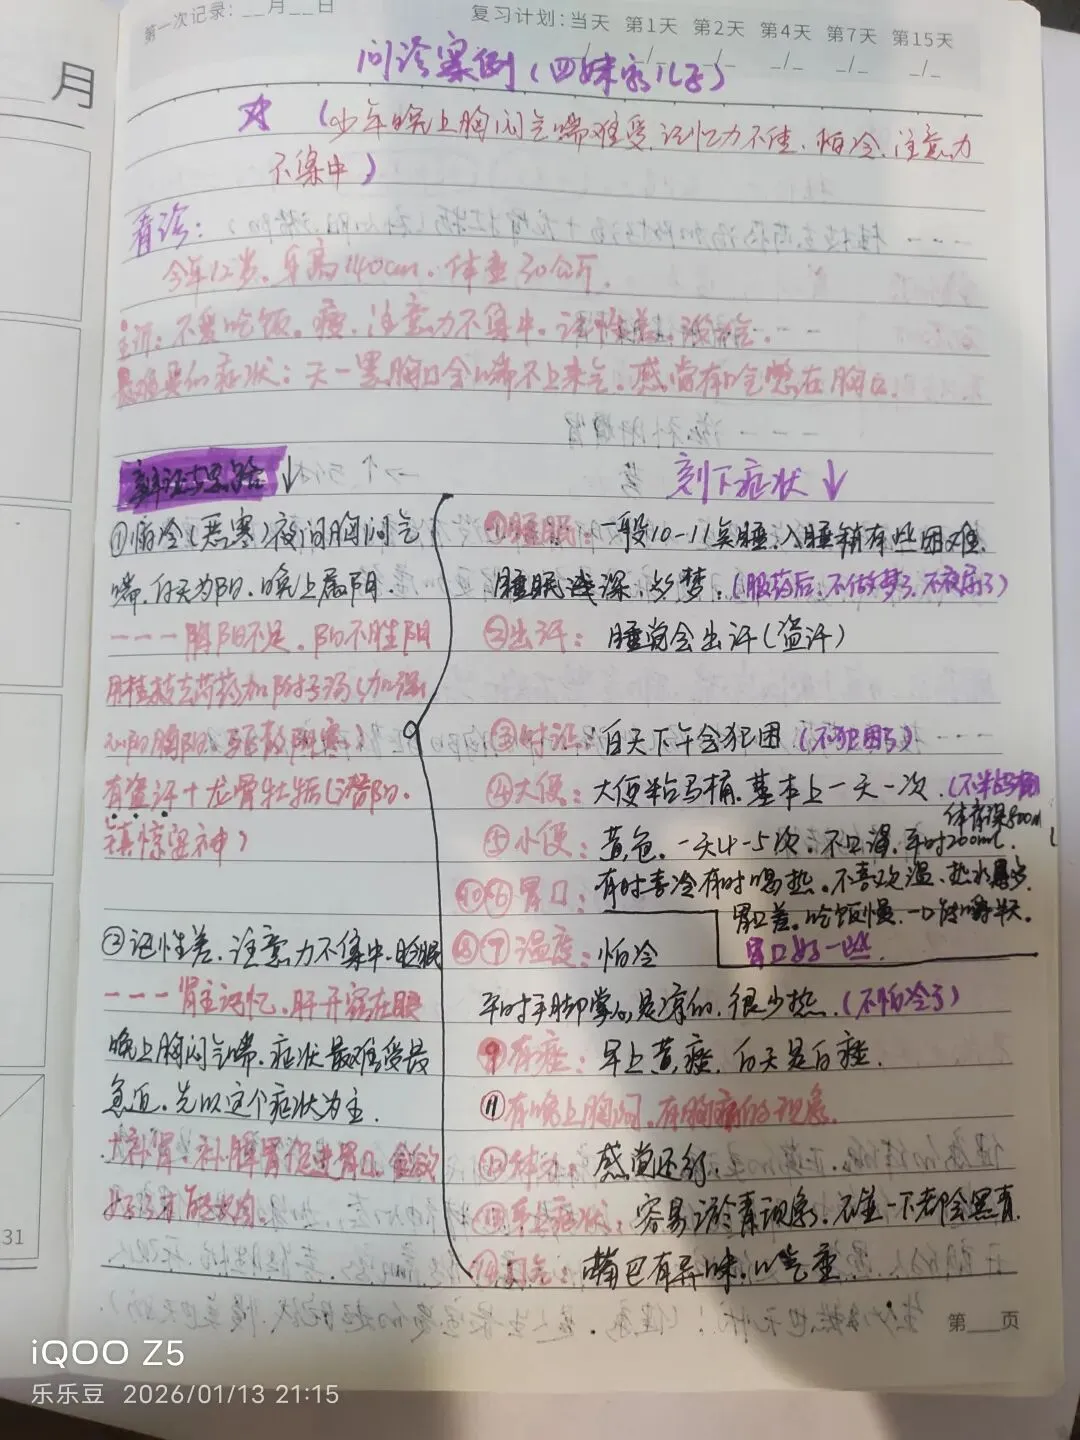 第一次记录：__月__日
复习计划：当天 第1天 第2天 第4天 第7天 第15天
月
问诊案例（四妹家儿子）
（少年晚上胸闷气喘难受、记忆力不佳、怕冷、注意力
不集中）
看诊：
今年12岁、身高140cm、体重30公斤、
主诉：不爱吃饭、瘦、注意力不集中、记性差、
最难受的症状：天一黑胸口会喘不上来气、感觉有口气憋在胸口、
辩证与思路↓
①怕冷（恶寒）夜间胸闷气
喘、白天为阳、晚上属阴、
----胸阳不足、阳不胜阴
用桂枝去芍药加附子汤（加强
心阳胸阳、驱散阴寒）
有盗汗+龙骨牡蛎（潜阳、
镇惊安神）
②记性差、注意力不集中、眨眼
----肾主记忆、肝开窍在眼
晚上胸闷气喘、症状最难受最
急迫、先以这个症状为主、
大补肾、补脾胃促进胃口、食欲
好了才能长肉、
刻下症状↓
①睡眠：一般10-11点睡、入睡稍有些困难、
睡眠浅深、多梦、（服药后、不做梦了、不夜尿了）
②出汗：睡觉会出汗（盗汗）
③白天下午会犯困（不犯困了）
④大便：大便粘马桶、基本上一天一次、（不粘马桶）
体育课800ml
⑤小便：黄色、一天4-5次、不口渴、平时200ml、
⑩⑥胃口：有时喜冷有时喝热、不喜欢温、热水
胃口差、吃饭慢、一口饭嚼半天、
胃口好一些、
⑧⑦温度：怕冷
平时手脚掌心是凉的、很少热、（不怕冷了）
⑨有痰：早上黄痰、白天是白痰、
⑪有晚上胸闷、有胸痛的现象、
⑫体力：感觉还行、
⑬容易淤青现象、不碰一下都会黑青、
⑭口气：嘴巴有异味、口气重
31
第__页
iQOO Z5
乐乐豆 2026/01/13 21:15